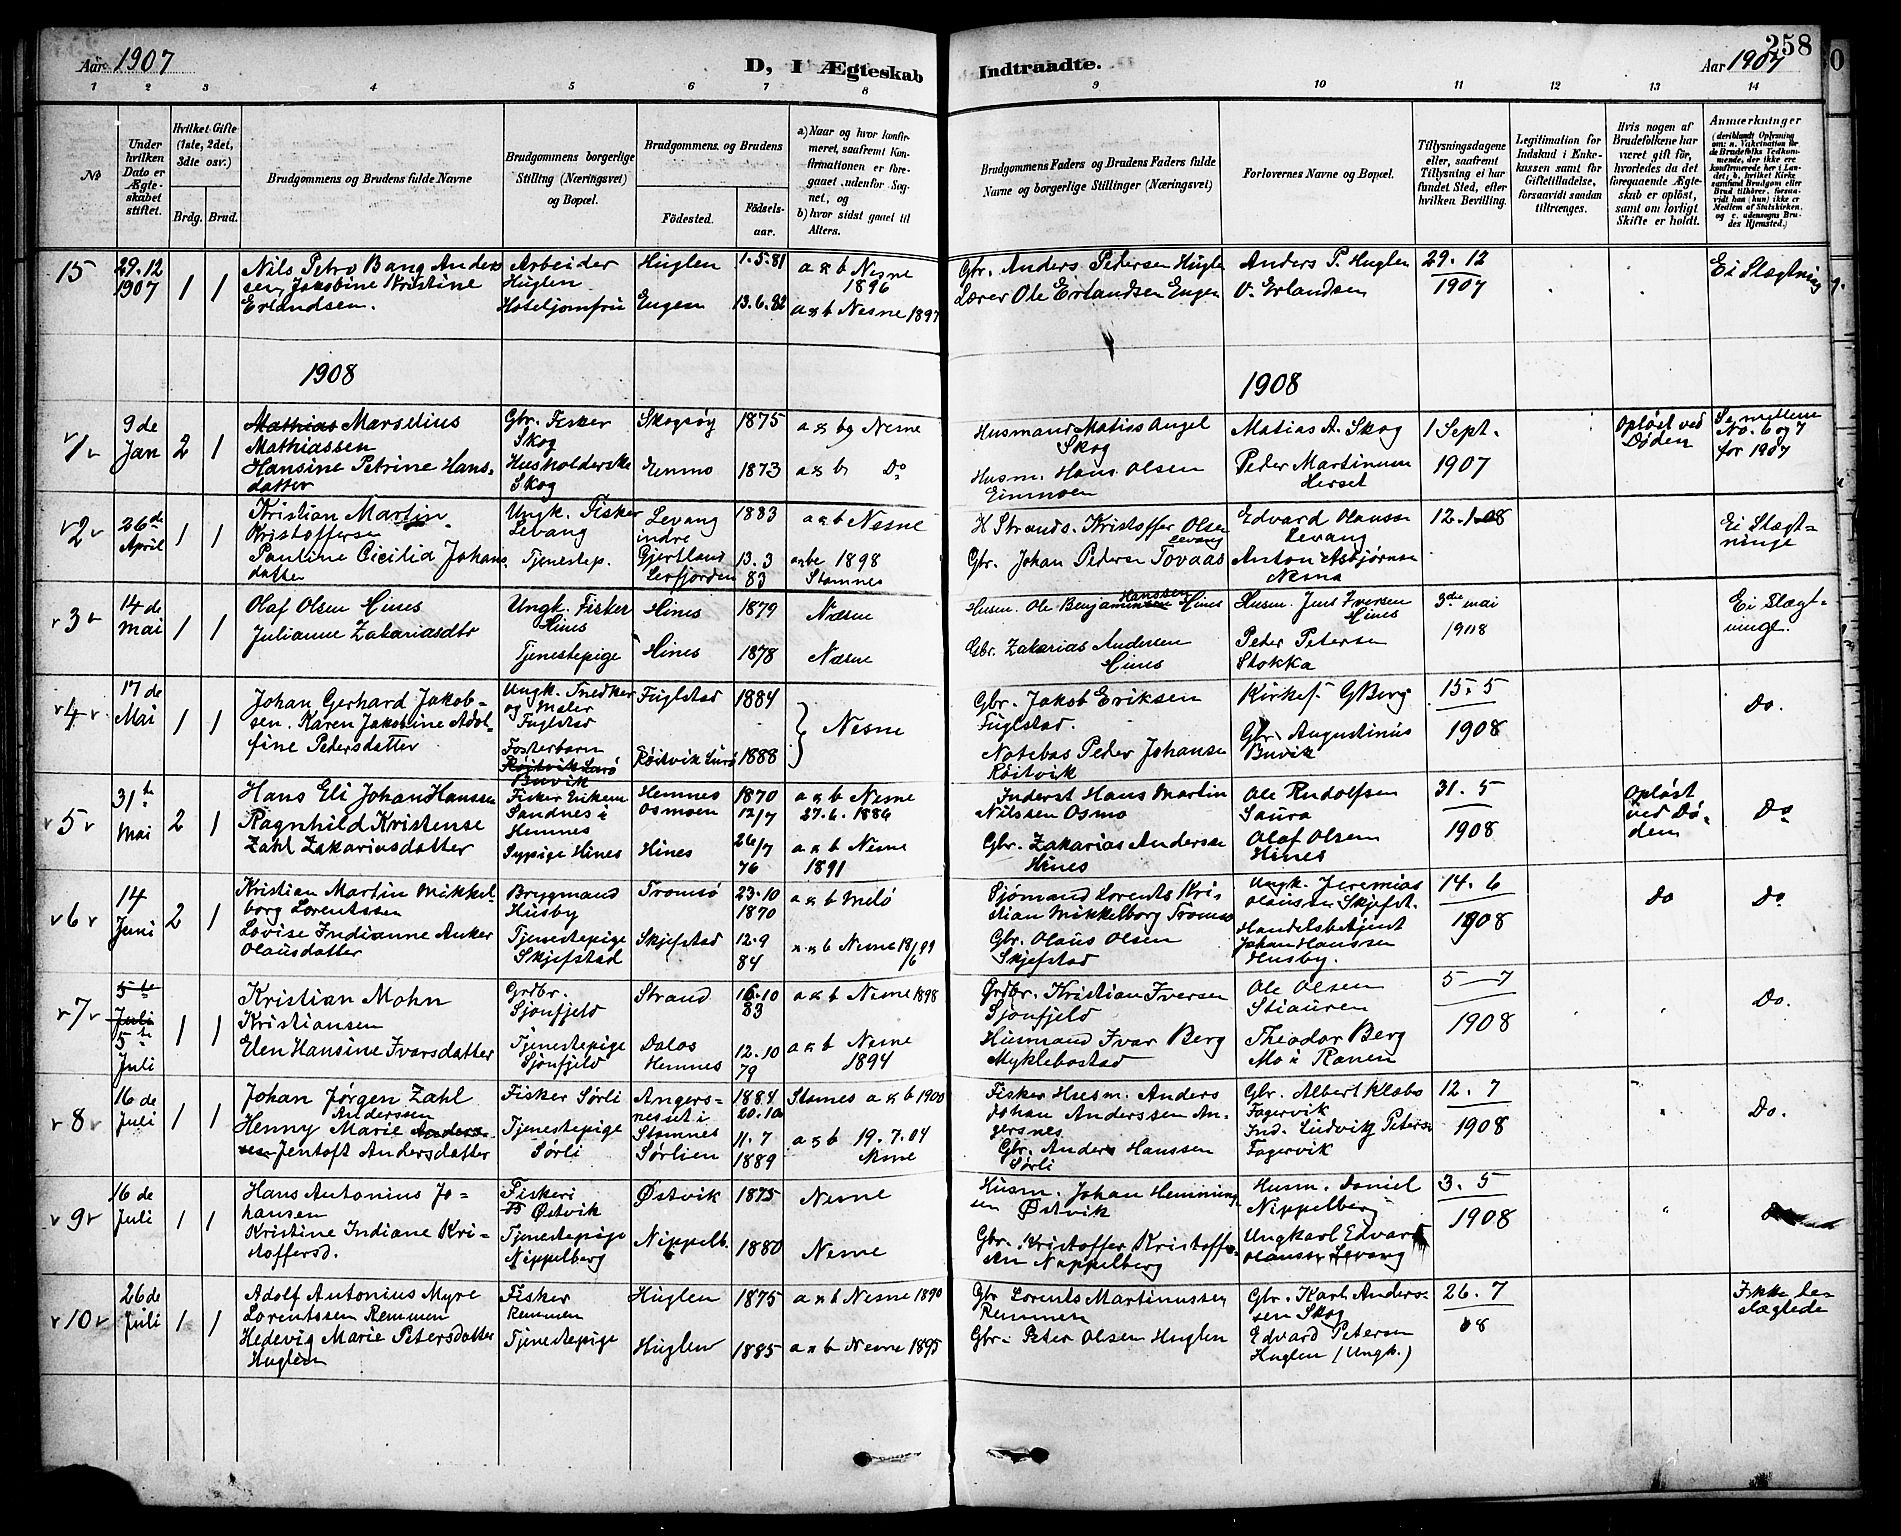 Aar 1907
D, I Ægteskab
Indtraadte.
Aar 1907
258
1 2 3 4 5 6 7 8 9 10 11 12 13 14
No
Under hvilken Dato er Ægteskabet stiftet.
Hvilket Gifte (1ste, 2det, 3die osv.)
Brdg. Brud.
Brudgommens og Brudens fulde Navne
Brudgommens borgerlige Stilling (Næringsvei) og Bopæl.
Brudgommens og Brudens
Fødested.
Fødselsaar.
a) Naar og hvor konfirmeret, saafremt Konfirmationen er foregaaet udenfor Sognet, og
b) hvor sidst gaaet til Alters.
Brudgommens Faders og Brudens Faders fulde Navne og borgerlige Stillinger (Næringsvei)
Forlovernes Navne og Bopæl.
Tillysningsdagene eller, saafremt Tillysning ei har fundet Sted, efter hvilken Bevilling.
Legitimation for Indskud i Enkekassen samt for Giftetilladelse, forsaavidt saadan tiltrænges.
Hvis nogen af Brudefolkene har været gift før, hvorledes da det foregaaende Ægteskab er opløst, samt om lovligt Skifte er holdt.
Anmærkninger (deriblandt Oplysning om: a. Vakcination for de Brudefolks Vedkommende, der ikke ere konfirmerede her i Landet; b. hvilket Kirkesamfund Brudgom eller Brud tilhører, forsaavidt han (hun) ikke er Medlem af Statskirken, og c. udensogns Brudes Hjemsted.)
15
29.12 1907
1 1
Nils Petro Bang Andersen, Jakobine Kristine Erlandsen.
Arbeider Huglen
Hoteljomfru
Huglen
Engen
1.5.81
13.6.82
a & b Nesne 1896
a & b Nesne 1897
Gbr. Anders Pedersen Hugle
Lærer Ole Erlandsen Engen
Anders P. Huglen
O. Erlandsen
29.12 1907
Ei Slægtning
1908
1908
1
9de Jan
2 1
Mathias Marselius Mathiassen
Hansine Petrine Hansdatter
Gbr. Fisker Skog
Husholderske Skog
Skogsøy
Enmo
1875
1873
a & b Nesne
a & b Do
Husmand Matias Angel Skog
Husm. Hans Olsen Eimnoen
Matias A. Skog
Peder Martinum Herset
1 Sept. 1907
Opløst ved Døden
Se mellem No. 6 og 7 for 1907
2
26de April
1 1
Kristian Martin Kristoffersen
Pauline Cicilia Johansdatter
Ungk. Fisker Levang
Tjenestep.
Levang indre
Gjertland Leirfjorden
1883
13.3 83
a & b Nesne
1898 Stamnes
H Strands. Kristoffer Olsen Levang
Gbr. Johan Pedersen Tovaas
Edvard Olaussen Levang
Anton Asbjørnsen Nesna
12.1.08
Ei Slægtninge
3
14de Mai
1 1
Olaf Olsen Hines
Julianne Zakariasdtr
Ungk. Fisker Hines
Tjenestepige
Hines
Hines
1879
1878
Næsne
Næsne
Husm. Ole Benjaminsen Hanssen Hines
Gbr. Zakarias Andersen Hines
Husm. Jens Iversen Hines
Peder Petersen Stokka
3die mai 1908
Ei Slægtninge.
4
17de Mai
1 1
Johan Gerhard Jakobsen. Karen Jakobine Adolfine Pedersdatter
Ungk. Snedker og Maler Fuglstad
Fosterbarn Røitvik Lurø Buvik
Fuglstad
Røitvik Lurø
1884
1888
Nesne
Gbr. Jakob Eriksen Fuglstad.
Notebas Peder Johanse Røitvik
Kirkes. G Berg
Gbr. Augustinus Buvik
15.5 1908
Do.
5
31te Mai
2 1
Hans Eli Johan Hanssen
Ragnhild Kristense Zahl Zakariasdatter
Fisker Enkem Sandnes i Hemnes
Sypige Hines
Hemnes Osmoen
Hines
1870 12/7
26/7 76
a & b Nesne 27.6.1886
a & b Nesne 1891
Inderst Hans Martin Nilssen Osmo
Gbr. Zakarias Anderssen Hines
Ole Rudolfsen Saura
Olaf Olsen Hines
31.5 1908
Opløst ved Døden
Do
6
14 Juni
2 1
Kristian Martin Mikkelborg Lorentssen
Lovise Indianne Anker Olausdatter
Bryggmand Husby
Tjenestepige Skjefstad
Tromsø
Skjefstad
23.10 1870
12.9 84
a & b Melø
a & b Nesne 18/6 99
Sjømand Lorents Kristian Mikkelborg Tromsø
Gbr. Olaus Olsen Skjefstad
Ungk. Jeremias Olaussen Skjefst.
Handelsbetjent Johan Hanssen Husby.
14.6 1908
Do
Do.
7
5te Juli
5te Juli
1 1
Kristian Mohn Kristiansen
Elen Hansine Ivarsdatter
Grdbr. Sjonfjeld
Tjenestepige Sjonfjeld
Strand
Dalos Hemnes
16.10 83
12.10 79
a & b Nesne 1898
a & b Nesne 1894
Grdbr. Kristian Iversen Sjonfjeld
Husmand Ivar Berg Myklebostad
Ole Olsen Stiauren
Theodor Berg Mo i Ranen
5–7 1908
Do.
8
16de Juli
1 1
Johan Jørgen Zahl Anderssen
Henny Marie Anderssen Jentoft Andersdatter
Fisker Sørli
Tjenestepige Sørli
Angersneset i Stamnes
Sørlien
1884 20.10
11.7 1889
Stamnes a & b 1900
a & b 19.7.04 Nesne
Fisker Husm. Anders Johan Anderssen Angersnes
Gbr. Anders Hanssen Sørli
Gbr. Albert Klæbo Fagervik
Ind. Ludvik Peters Fagervik
12.7 1908
Do.
9
16de Juli
1 1
Hans Antonius Johansen
Kristine Indiane Kristoffersd.
Fiskeri Østvik
Tjenestepige Nippelberg
Østvik
Nippelb.
1875
1880
Nesne
Nesne
Husm. Johan Hemmingsen Østvik
Gbr. Kristoffer Kristoffersen Nippelberg
Husm. Daniel Nippelberg
Ungkarl Edvard Olaussen Levang
3.5 1908
10
26de Juli
1 1
Adolf Antonius Myre Lorentssen Remmen
Hedevig Marie Petersdatter Huglen
Fisker Remmen
Tjenestepige
Huglen
Huglen
1875
1885
a & b Nesne 1890
a & b Nesne 1895
Gbr Lorents Martinussen Remmen
Gbr. Peter Olsen Huglen
Gbr. Karl Anderssen Skog
Edvard Petersen Huglen (Ungk.)
26.7 08
Ikke beslægtede